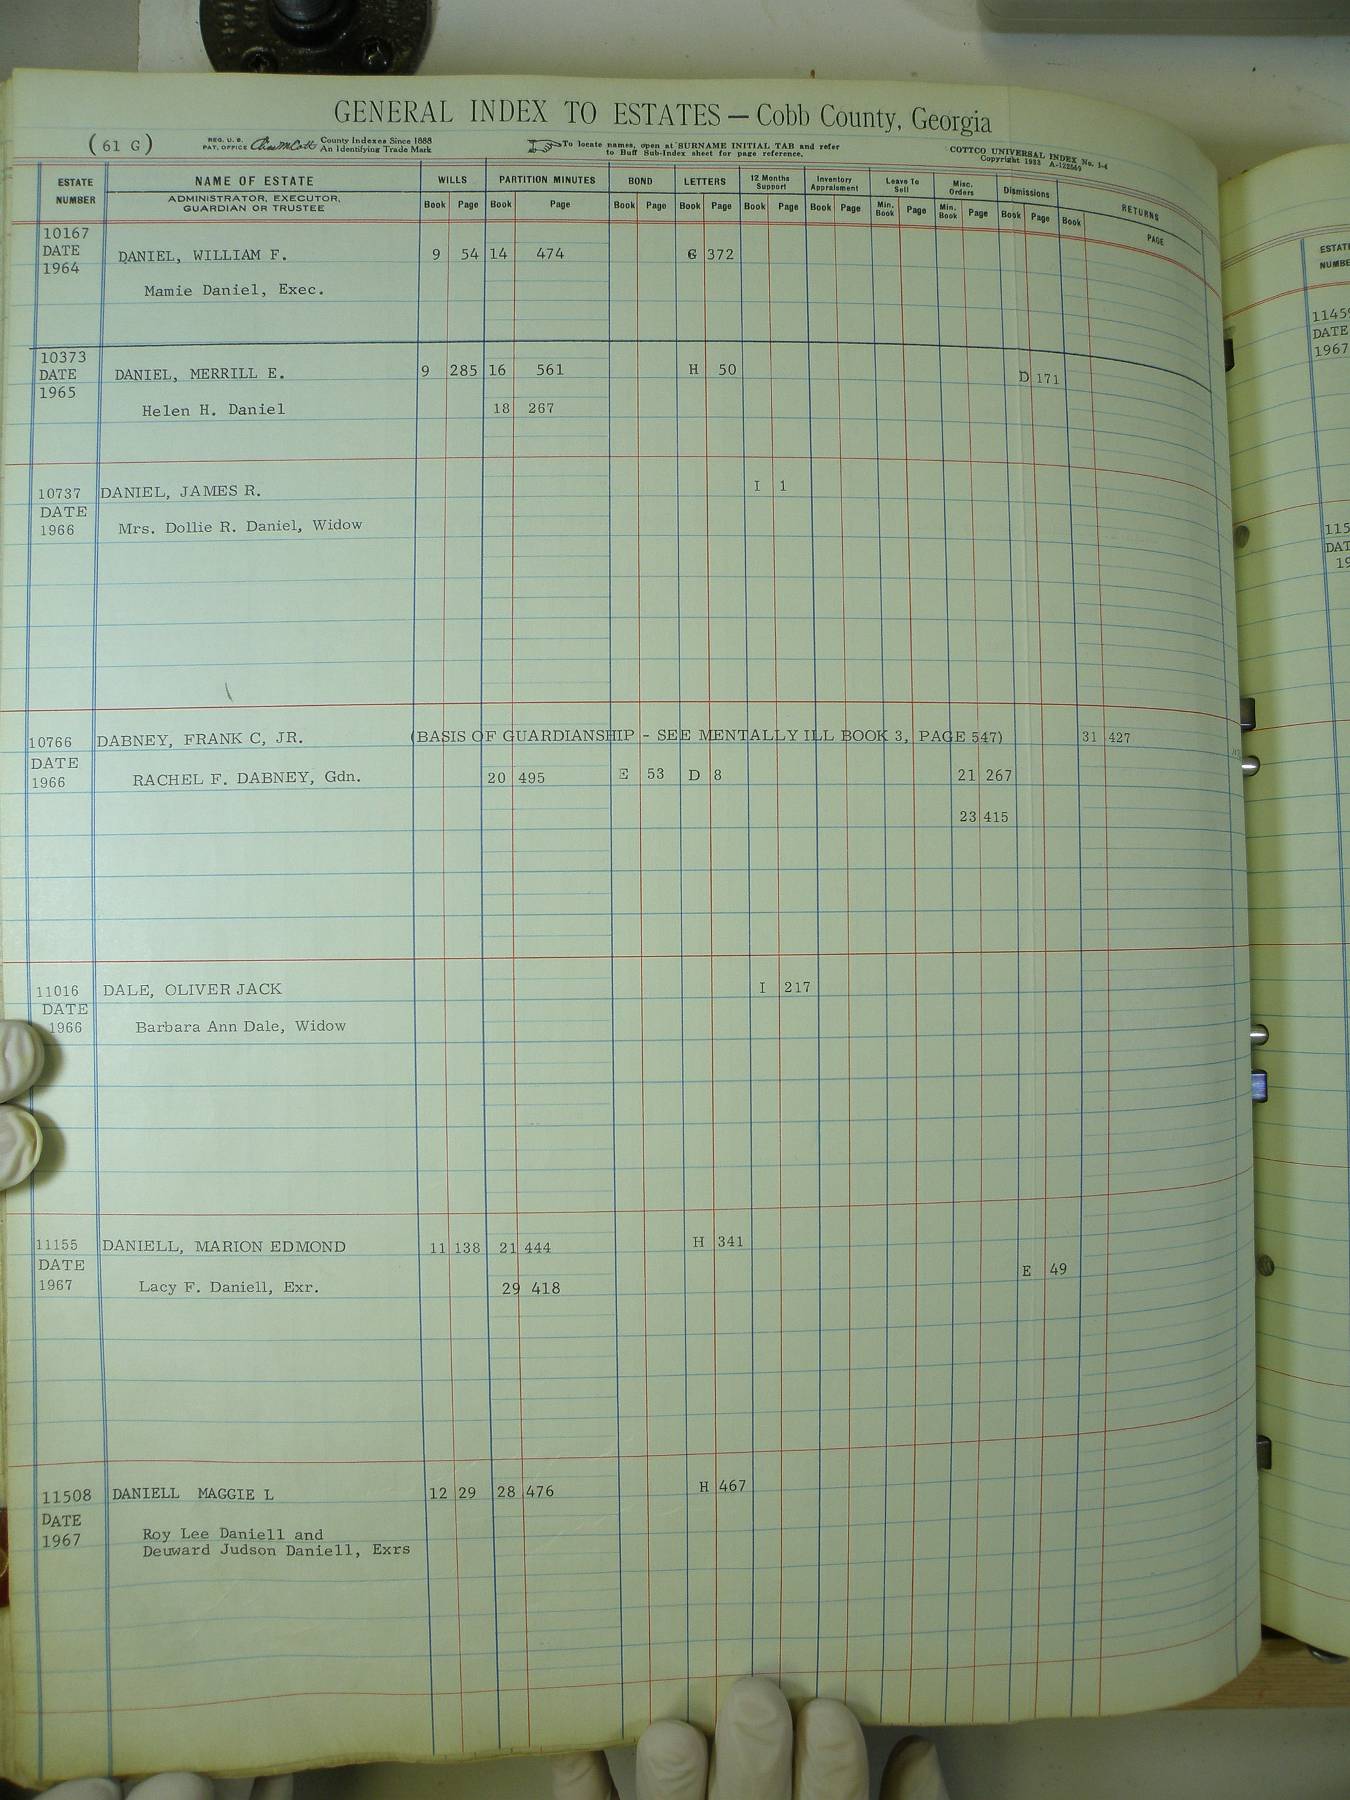 GENERAL INDEX TO ESTATES — Cobb County, Georgia
(61 G)
REG. U. S. PAT. OFFICE
County Indexes Since 1888
An Identifying Trade Mark
To locate names, open at SURNAME INITIAL TAB and refer
to Buff Sub-Index sheet for page reference.
COTTCO UNIVERSAL INDEX No. 1-4
Copyright 1933 A-122569
ESTATE NUMBER NAME OF ESTATE WILLS PARTITION MINUTES BOND LETTERS 12 Months Support Inventory Appraisment Leave To Sell Misc. Orders Dismissions RETURNS
ADMINISTRATOR, EXECUTOR, GUARDIAN OR TRUSTEE Book Page Book Page Book Page Book Page Book Page Book Page Min. Book Page Min. Book Page Book Page Book PAGE
10167
DATE
1964
DANIEL, WILLIAM F. 9 54 14 474 G 372
Mamie Daniel, Exec.
10373
DATE
1965
DANIEL, MERRILL E. 9 285 16 561 H 50 D 171
Helen H. Daniel 18 267
10737 DANIEL, JAMES R. I 1
DATE
1966 Mrs. Dollie R. Daniel, Widow
10766 DABNEY, FRANK C, JR. (BASIS OF GUARDIANSHIP - SEE MENTALLY ILL BOOK 3, PAGE 547) 31 427
DATE
1966 RACHEL F. DABNEY, Gdn. 20 495 E 53 D 8 21 267
23 415
11016 DALE, OLIVER JACK I 217
DATE
1966 Barbara Ann Dale, Widow
11155 DANIELL, MARION EDMOND 11 138 21 444 H 341
DATE E 49
1967 Lacy F. Daniell, Exr. 29 418
11508 DANIELL MAGGIE L 12 29 28 476 H 467
DATE
1967 Roy Lee Daniell and
Deuward Judson Daniell, Exrs
DATE
1967